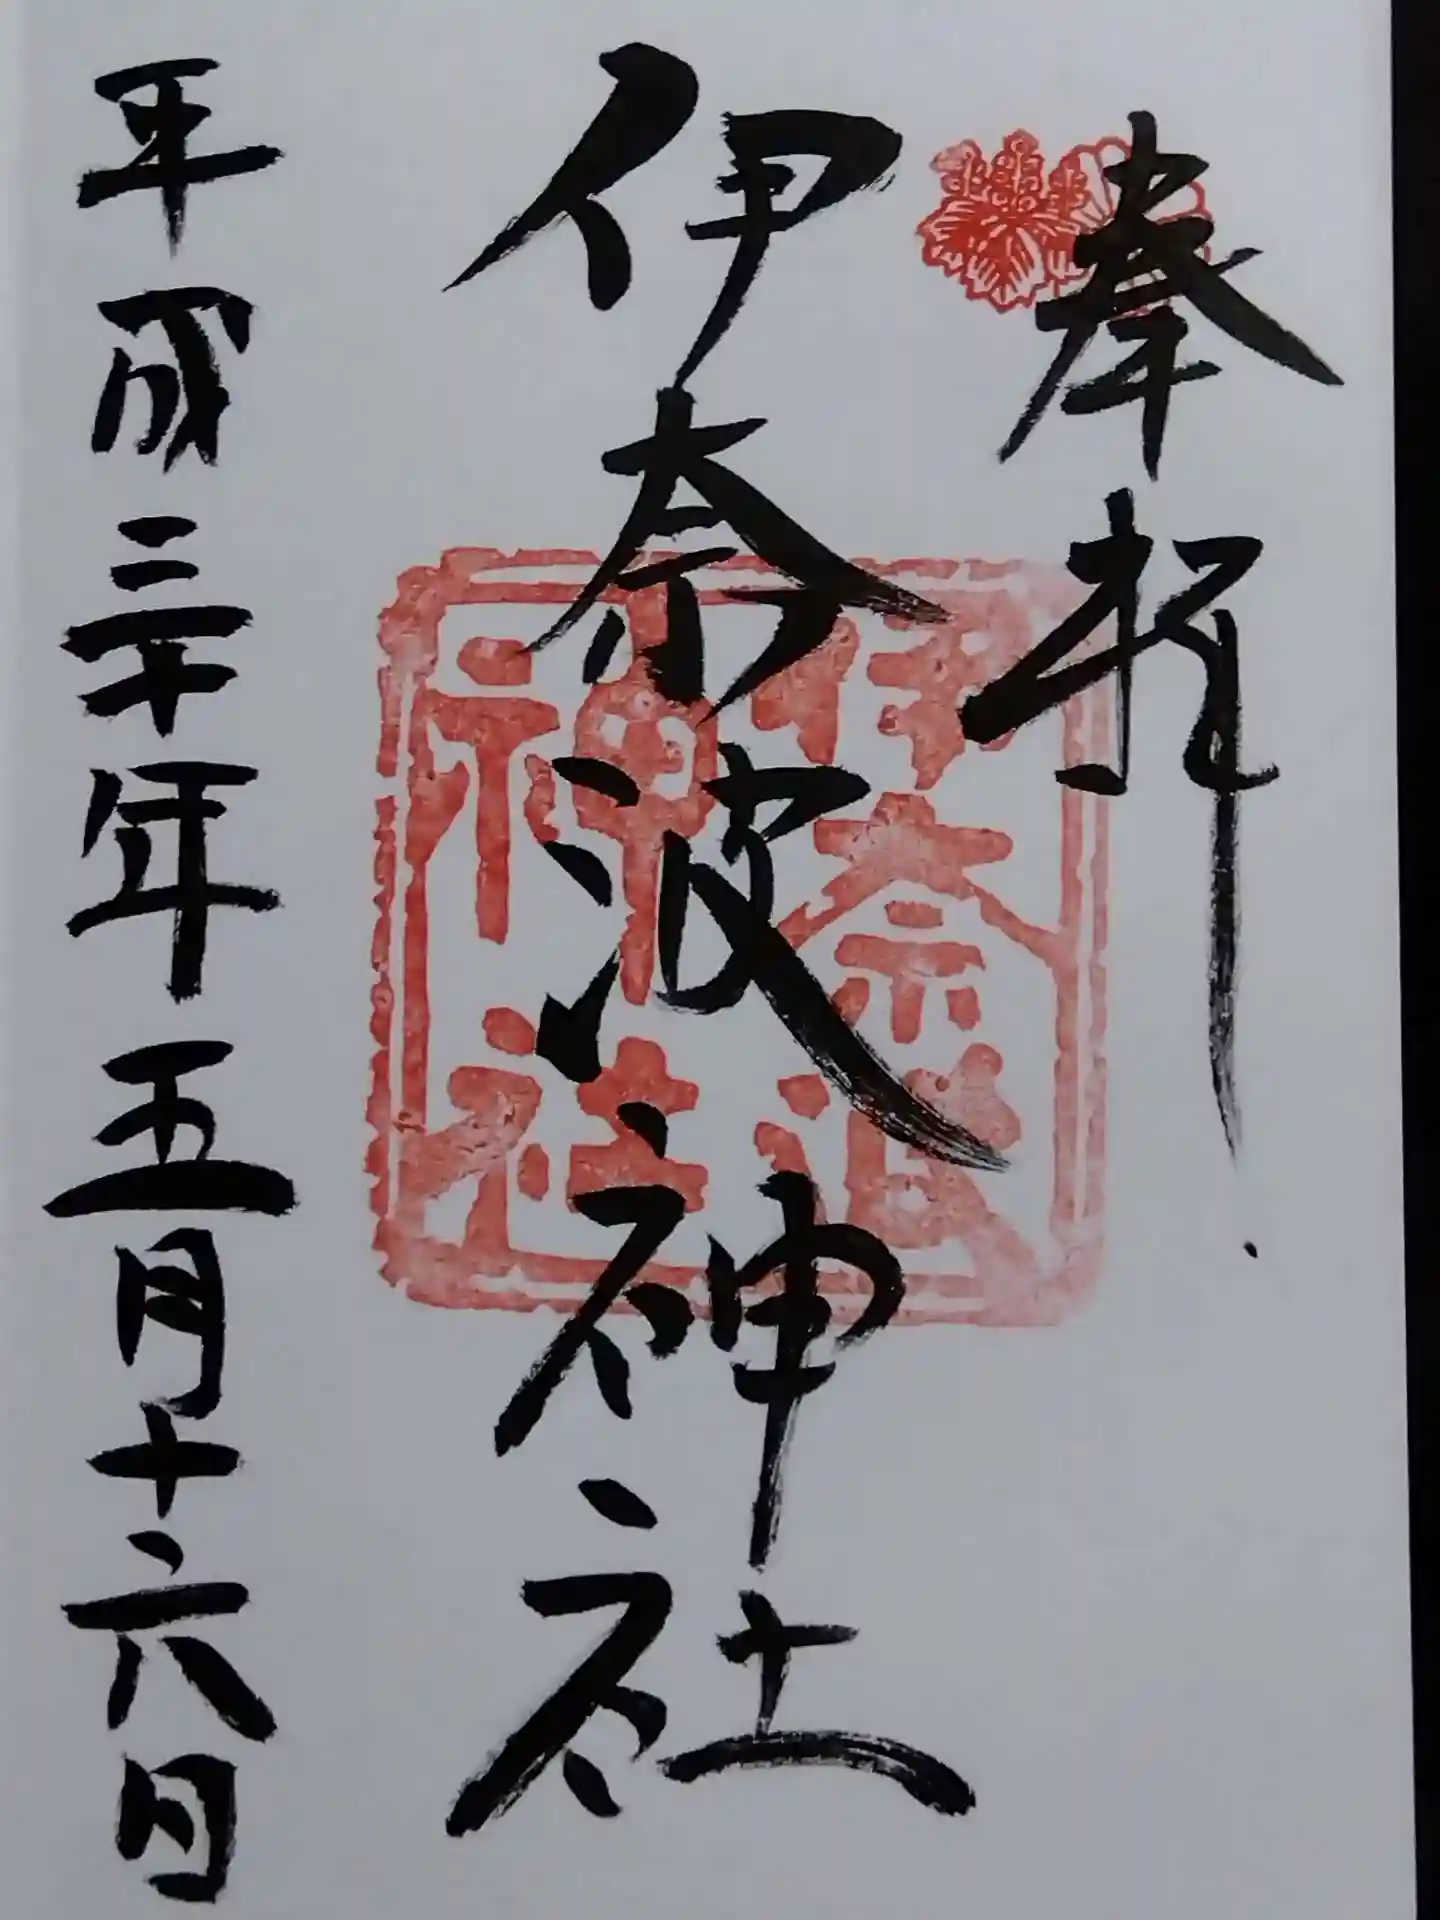 奉拝
伊奈波神社
平成三十年五月十六日
伊奈波
神社